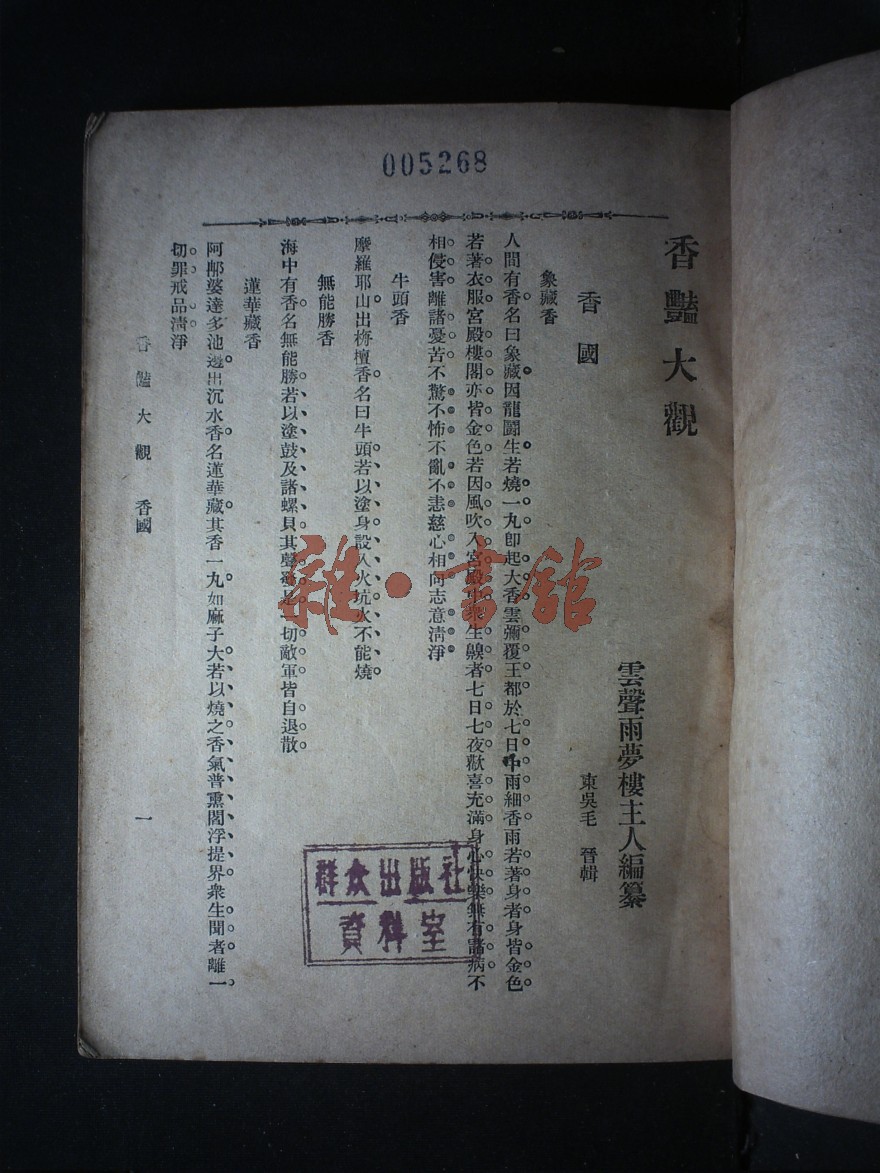 005268
香豔大觀
雲聲雨夢樓主人編纂
香國
東吳毛 晉輯
象藏香
人間有香名曰象藏因龍鬭生若燒一丸卽起大香雲彌覆王都於七日中雨細香雨若著身者身皆金色
若著衣服宮殿樓閣亦皆金色若因風吹入宮殿中衆生齅者七日七夜歡喜充滿身心快樂無有諸病不
相侵害離諸憂苦不驚不怖不亂不恚慈心相向志意清淨
牛頭香
摩羅耶山出栴檀香名曰牛頭若以塗身設入火坑火不能燒
無能勝香
海中有香名無能勝若以塗鼓及諸螺貝其聲發一切敵軍皆自退散
蓮華藏香
阿那婆達多池邊出沉水香名蓮華藏其香一丸如麻子大若以燒之香氣普熏閻浮提界衆生聞者離一
切罪戒品清淨
香豔大觀 香國
一
雜·書館
群众出版社
資料室